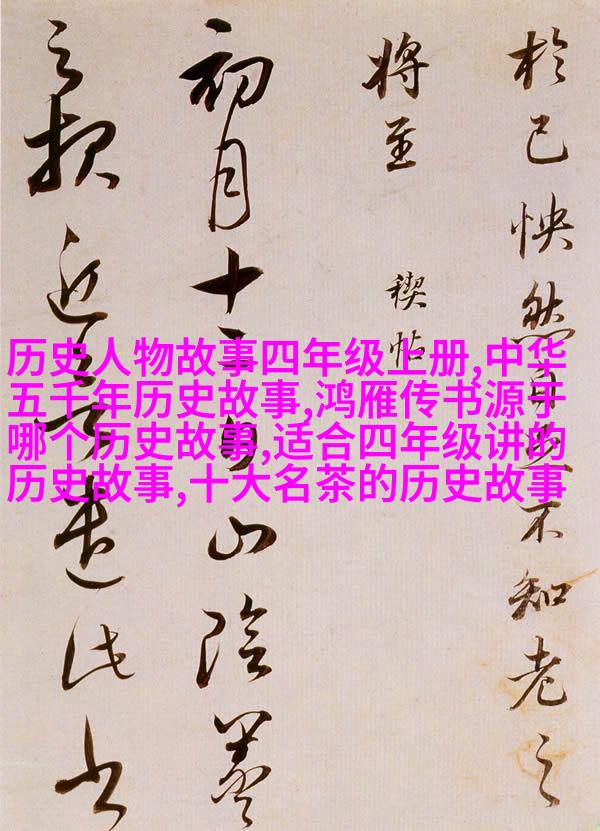 於己怏然自足不知老之
將至
禊帖
初月十二日山陰羲
之報近欲遣此書
历史人物故事四年级上册,中华
五千年历史故事,鸿雁传书源于
哪个历史故事,适合四年级讲的
历史故事,十大名茶的历史故事